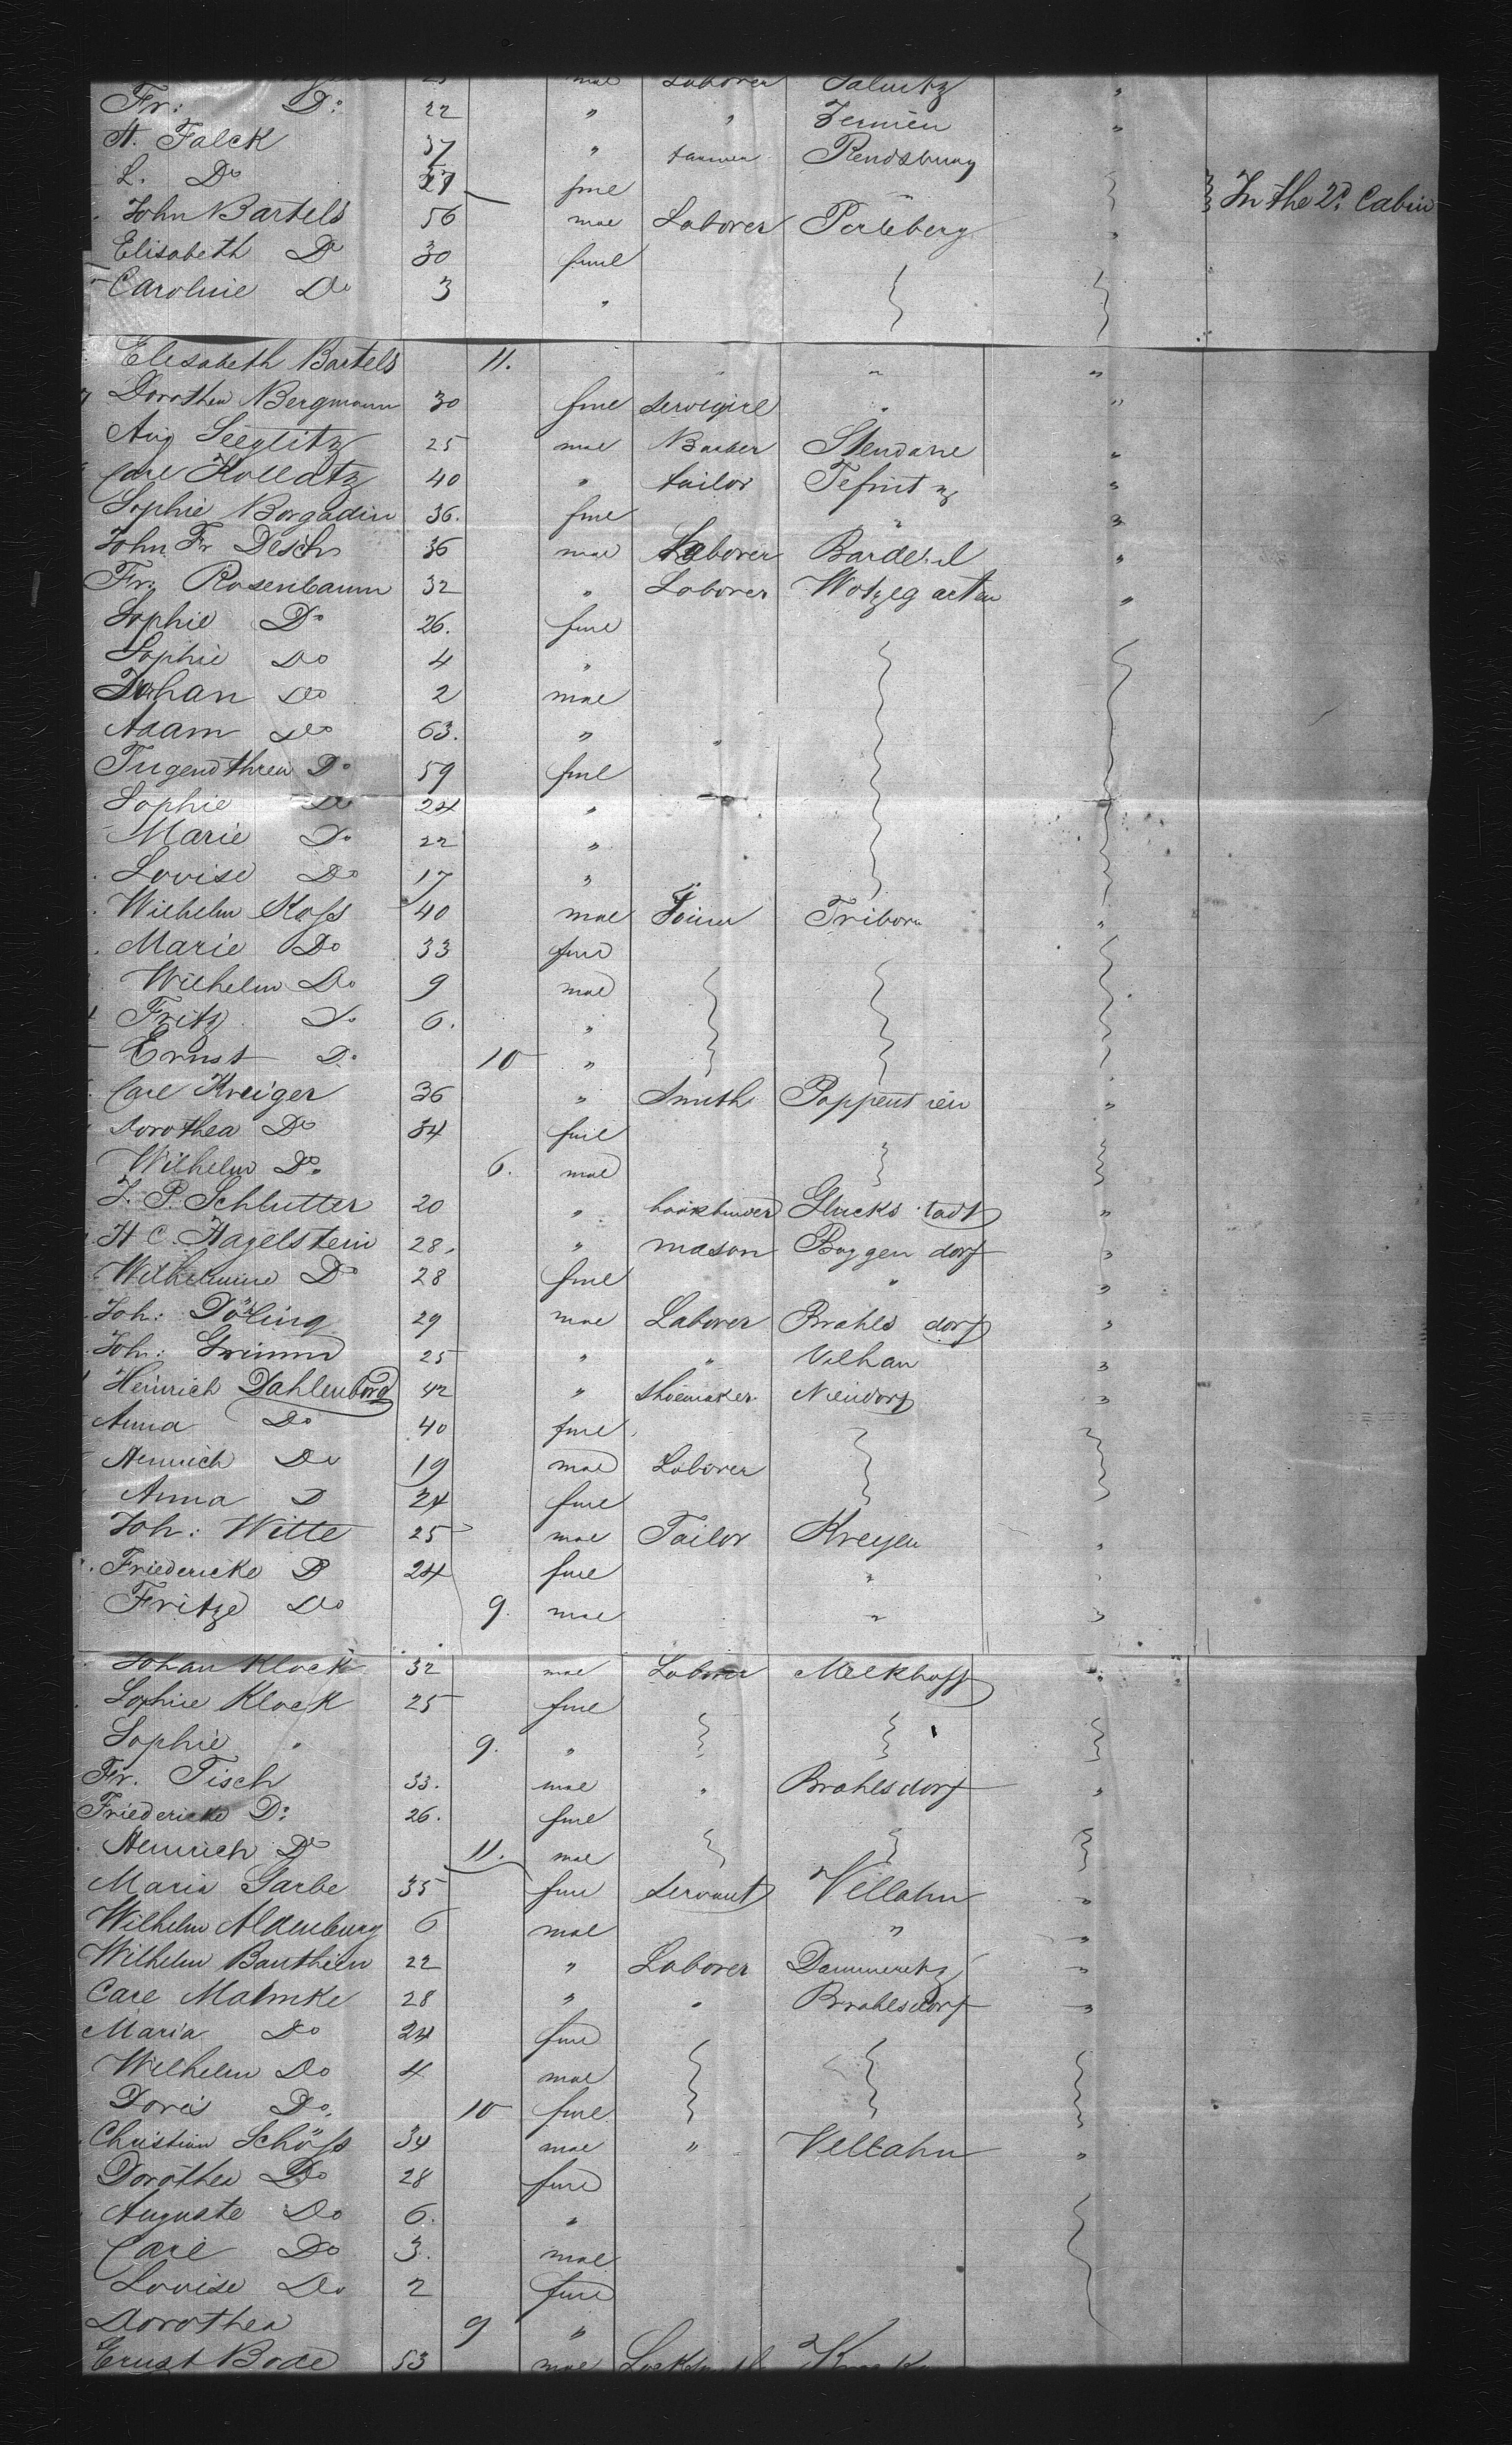 mae Laborer
Fr: Do 22 " "
H. Falck 37 " Rendsburg "
L. Do 27 fme " In the 2d Cabin
John Bartels 56 mae Laborer Perleberg "
Elisabeth Do 30 fme
Caroline Do 3 "
Elisabeth Bartels 11. " "
Dorothea Bergmann 30 fme " "
Aug Seeglitz 25 mae Barber "
Carl Kollatz 40 " tailor "
Sophie 36. fme " "
John Fr Desch 36 mae Laborer "
Fr: Rosenbaum 32 " Laborer "
Sophie Do 26. fme
Sophie Do 4 "
Johan Do 2 mae
Adam Do 63. " "
Do 59 fme
Sophie Do 24 "
Marie Do 22 "
Louise Do 17 "
Wilhelm Kofs 40 mae Joiner "
Marie Do 33 fme
Wilhelm Do 9 mae
Fritz Do 6. "
Ernst Do 10 "
Carl Kreiger 36 " Smith "
Dorothea Do 34 fme
Wilhelm Do. 6. mae
J. P. Schlutter 20 " bookbinder Gluckstadt "
H C. Hagelstein 28. " mason Boggendorf "
Wilhelmine Do 28 fme " "
Joh: Döling 29 mae Laborer Brahlsdorf "
Joh: Grimm 25 " " Velhan "
Heinrich Dahlenborg 42 " Shoemaker Niendorf "
Anna Do 40 fme
Heinrich Do 19 mae Laborer
Anna D 24 fme
Joh: Witte 25 mae Tailor "
Friedericke D 24 fme " "
Fritze Do 9. mae " "
Johan Klock 32 mae Laborer Melkhoff "
Sophie Klock 25 fme
Sophie " 9. "
Fr. Tisch 33. mae " Brahlsdorf "
Friedericke Do 26. fme
Heinrich Do 11. mae
Maria Garbe 35 fme Servant Vellahn "
Wilhelm Aldenburg 6 mae " "
Wilhelm Bauthien 22 " Laborer Dammeretz "
Carl Mahnke 28 " " Brahlsdorf "
Maria Do 24 fme
Wilhelm Do 4 mae
Doris Do. 10 fme
Christian Schöfs 34 mae " Vellahn "
Dorothea Do 28 fme
Auguste Do 6. "
Carl Do 3. mae
Louise Do 2 fme
Dorothea 9 "
Ernst Bode 53 mae Locksmith